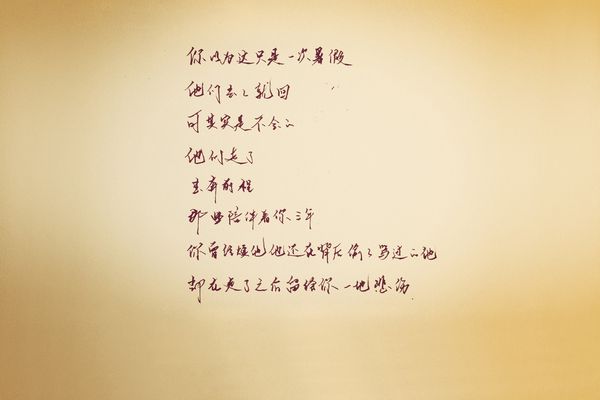 你以为这只是一次暑假
他们去去就回
可其实是不会的
他们走了
去奔前程
那些陪伴着你三年
你曾经烦他他还在背后偷偷骂过的他
却在走了之后留给你一地悲伤.